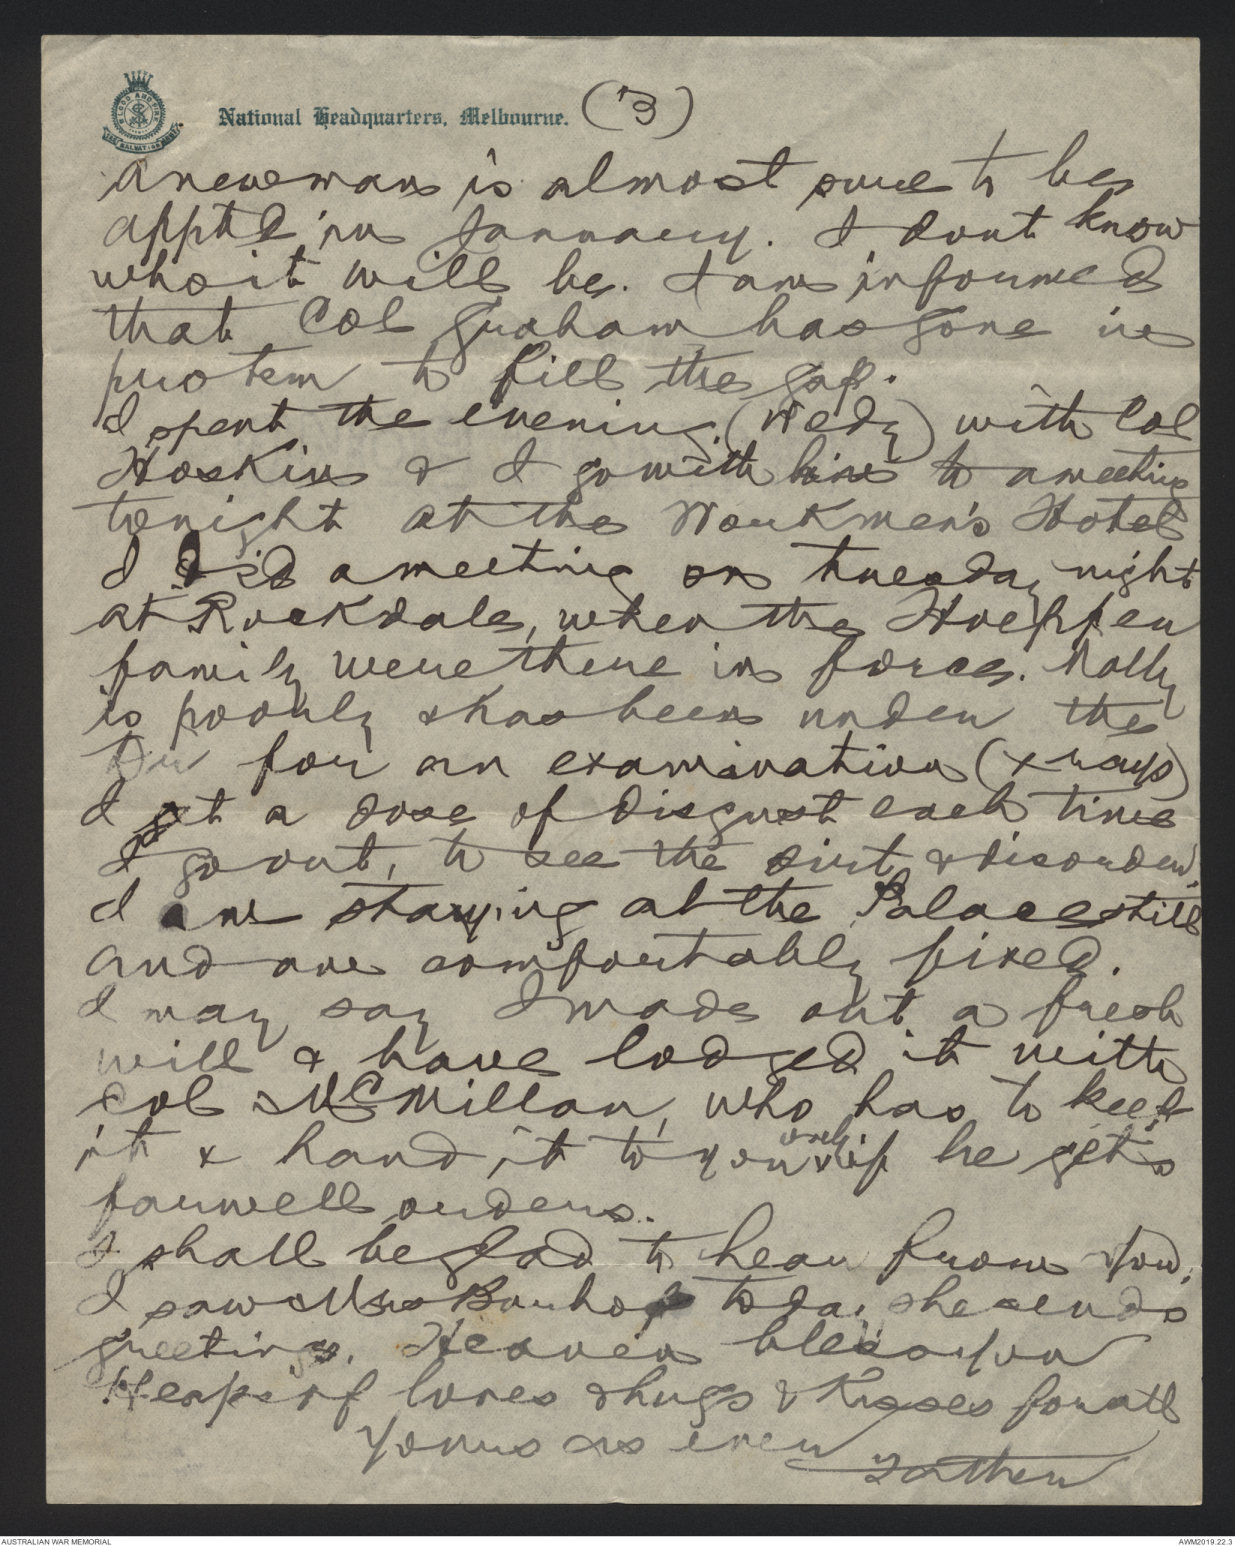 BLOOD AND FIRE
THE SALVATION ARMY
National Headquarters, Melbourne. (3)
a new man is almost sure to be
apptd in January. I dont know
who it will be. I am informed
that Col Graham has gone in
protem to fill the gap.
I spent the evening (Wedy) with Col
Hoskin & I go with him to a meeting
tonight at the Workmen's Hotel
I did a meeting on Tuesday night
at Rockdale, when the Hoepper
family were there in force. Molly
is poorly & has been under the
Dr for an examination (x rays)
I get a dose of disgust each time
I go out, to see the dirt & disorder.
I am staying at the Palace still
and am comfortably fixed.
I may say I made out a fresh
will & have lodged it with
Col McMillan, who has to keep
it & hand it to you if he gets
farwell orders.
I shall be glad to hear from you,
I saw Mrs today she sends
greetings. Heaven bless you
Heaps of loves & hugs & kisses for all
Yours as ever
Father
AUSTRALIAN WAR MEMORIAL
AWM2019.22.3